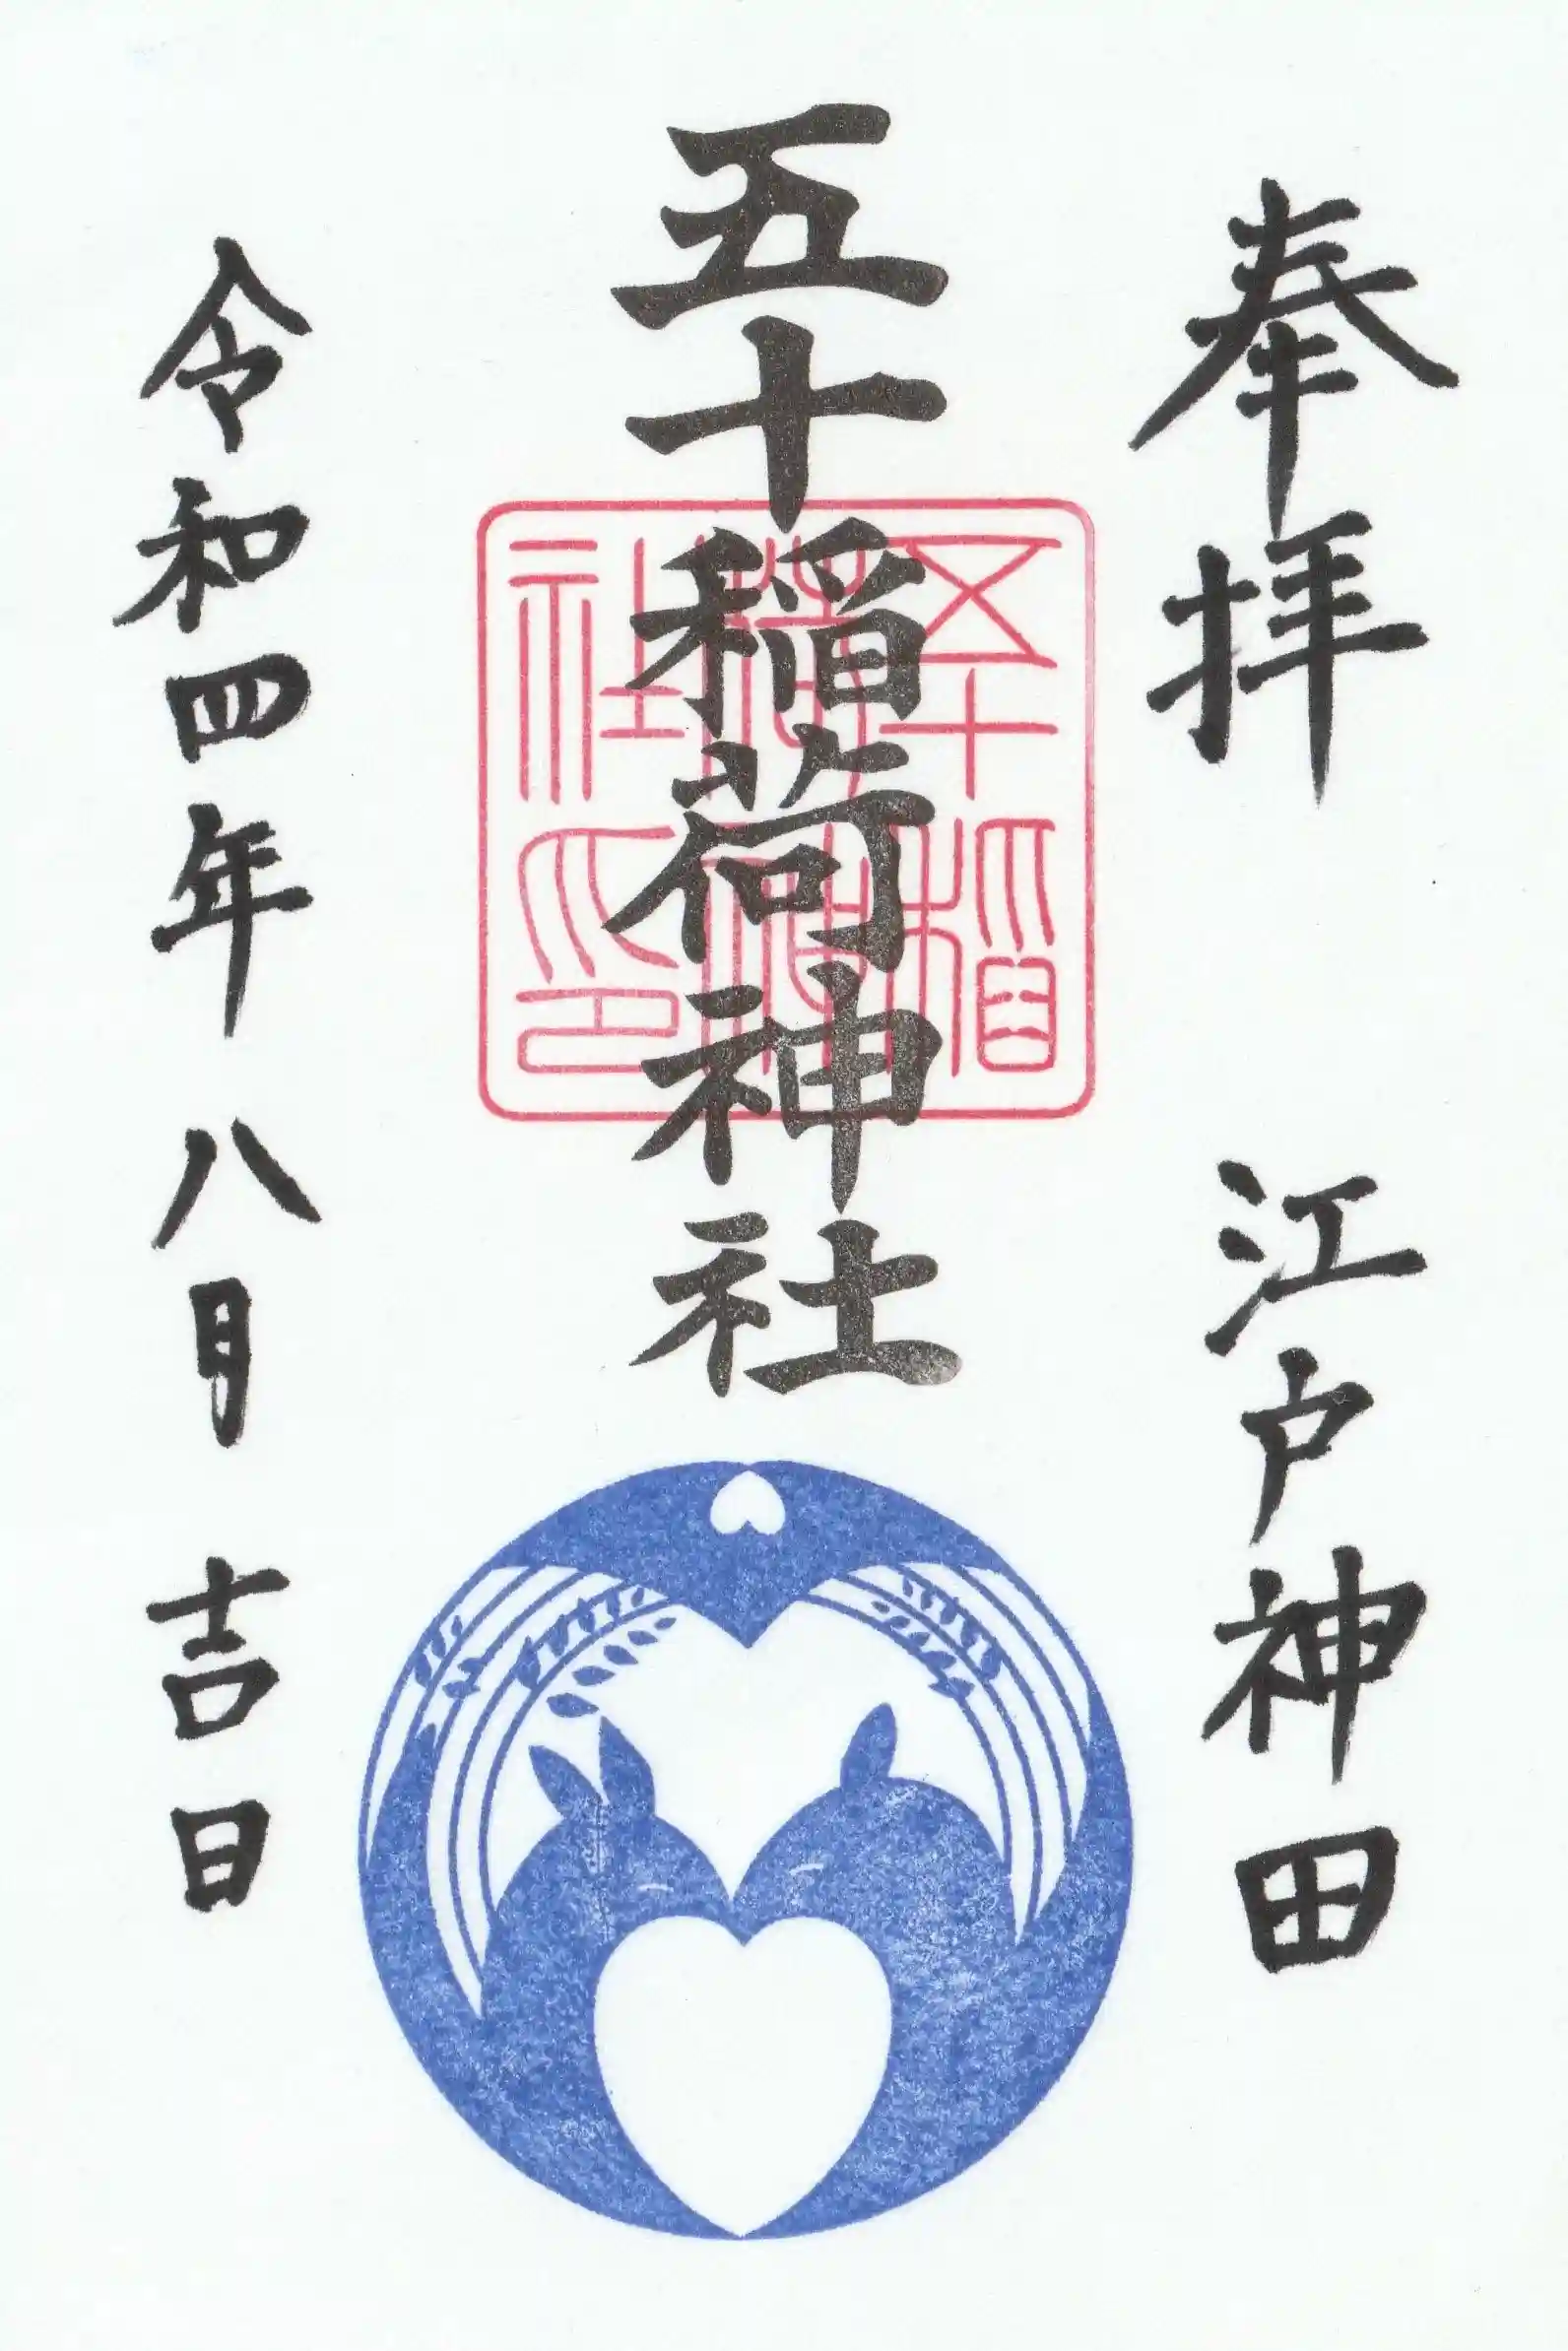 奉拝 江戸神田
五十稲荷神社
五十稲
荷神
社印
令和四年 八月 吉日